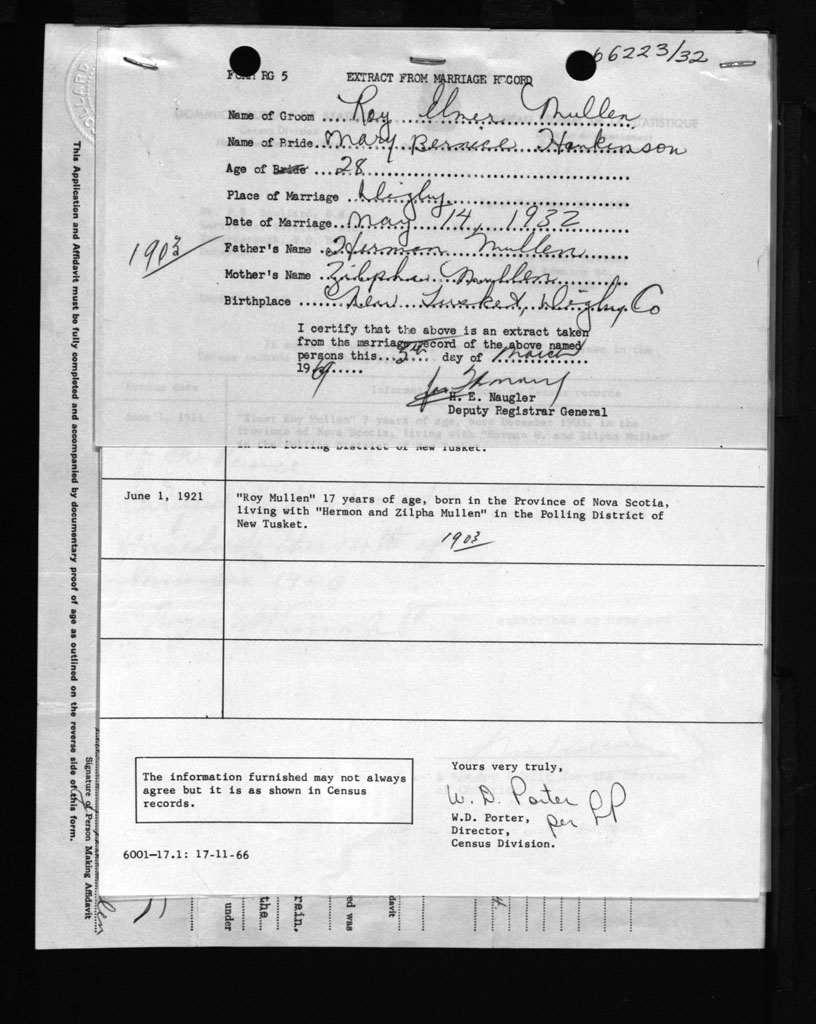 66223/32
FORM RG 5 EXTRACT FROM MARRIAGE RECORD
Name of Groom ... Roy Elmer Mullen
Name of Bride. Mary Bernice Hankinson
Age of Bride ... 28
Place of Marriage ... Digby
Date of Marriage. May 14, 1932
1903
Father's Name . Herman Mullen
Mother's Name . Zilpha Mullen
Birthplace ..... New Tusket, Digby Co
I certify that the above is an extract taken
from the marriage record of the above named
persons this... 5th .. day of March
1969.....
H. E. Naugler
Deputy Registrar General
in the Polling District of New Tusket.
June 1, 1921 "Roy Mullen" 17 years of age, born in the Province of Nova Scotia,
living with "Hermon and Zilpha Mullen" in the Polling District of
New Tusket.
1903
The information furnished may not always
agree but it is as shown in Census
records.
Yours very truly,
W. D. Porter
per PP
W.D. Porter,
Director,
Census Division.
6001-17.1: 17-11-66
This Application and Affidavit must be fully completed and accompanied by documentary proof of age as outlined on the reverse side of this form.
Signature of Person Making Affidavit
under
the
rein.
ed was
davit